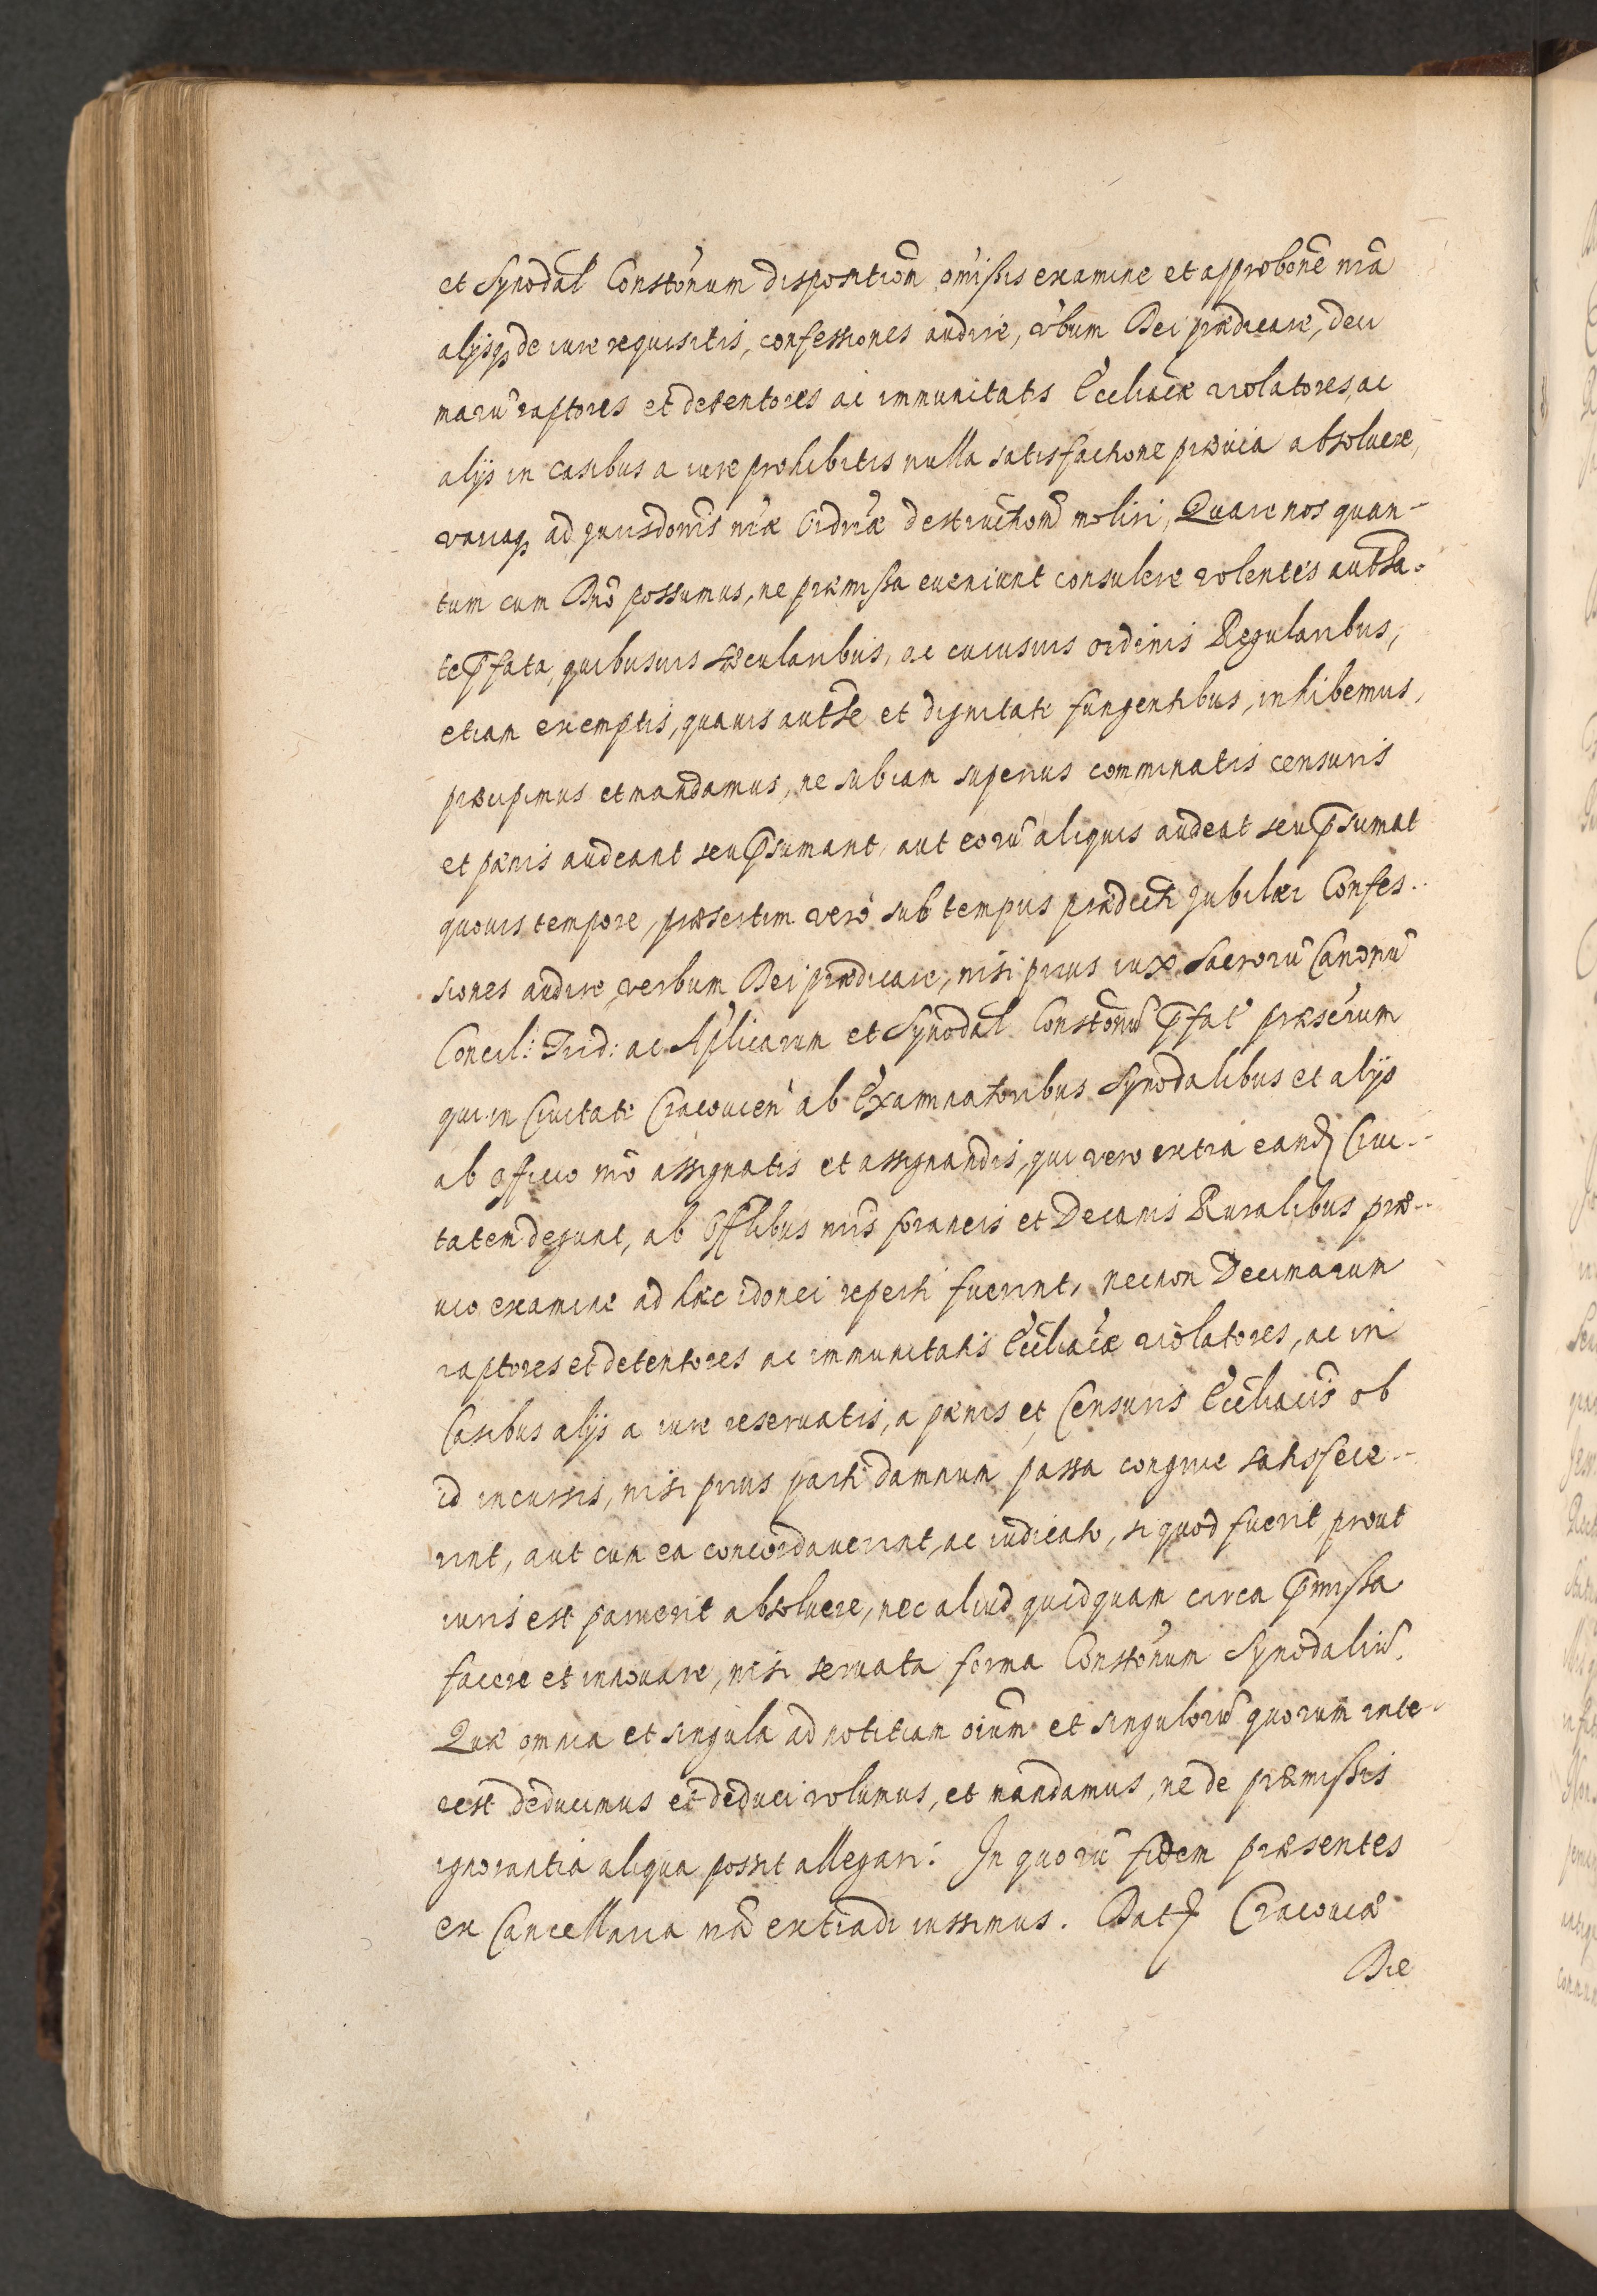 et Synodal Constõnum dispositiom̃ omissis examine et approbõne nr̃a
alijsq; de iure requisitis, confessiones audire, v̓bum Dei prædicare, deci
marũ raptores et detentores ac immunitatis Eccl̃iacæ violatores, ac
alijs in casibus a iure prohibitis nulla satisfactione præuia absoluere,
variaq; ad jurisdõnis nr̃æ Ordr̃iæ destructiom̃ moliri, Quare nos quan-
tum cum Dño possumus, ne præmissa eueniunt consulere volentes autħa-
te p̃fata, quibusuis sæcularibus, ac cuiusuis ordinis Regularibus,
etiam exemptis, quauis autħe et dignitati fungentibus, inhibemus,
præcipimus et mandamus, ne sub iam superius comminatis censuris
et pænis audeant seu p̃sumant, aut eorũ aliquis audeat seu p̃sumat
quouis tempore, præsertim verò sub tempus prædicti Jubilæi Confes-
siones audire, verbum Dei prædicare, nisi prius iux̃ Sacrorũ Canonũ
Concil: Trid: ac Ap̃licarum et Synodal Constõnũ p̃fat præserum
qui in Ciuitati Cracouien̄ ab Examinatoribus Synodalibus et alijs
ab officio nrõ assignatis et assignandis, qui vero extra eand; Ciui-
tatem degunt, ab Offl̃ibus nr̃is foraneis et Decanis Ruralibus præ-
uio examine ad hæc idonei reperti fuerint, necnon Decimarum
raptores et detentores ac immunitatis Eccl̃iacæ violatores, ac in
Casibus alijs a iure reseruatis, a pænis et Censuris Eccl̃iacis ob
id incursis, nisi prius parti damnum passa congrue satisfece-
rint, aut cum ea concordauerint, ac iudicato, si quod fuerit, prout
iuris est paruerit absoluere, nec aliud quidquam circa p̃missa
facere et innouare, nisi seruata forma Constõnum Synodaliũ.
Quæ omnia et singula ad notitiam oium̃ et singulorũ quorum inte-
rest deducimus et deduci volumus, et mandamus, ne de præmissis
ignorantia aliqua possit allegari: In quorũ fidem præsentes
ex Cancellaria nr̃a extradi iussimus. Dat; Cracouiæ
Die